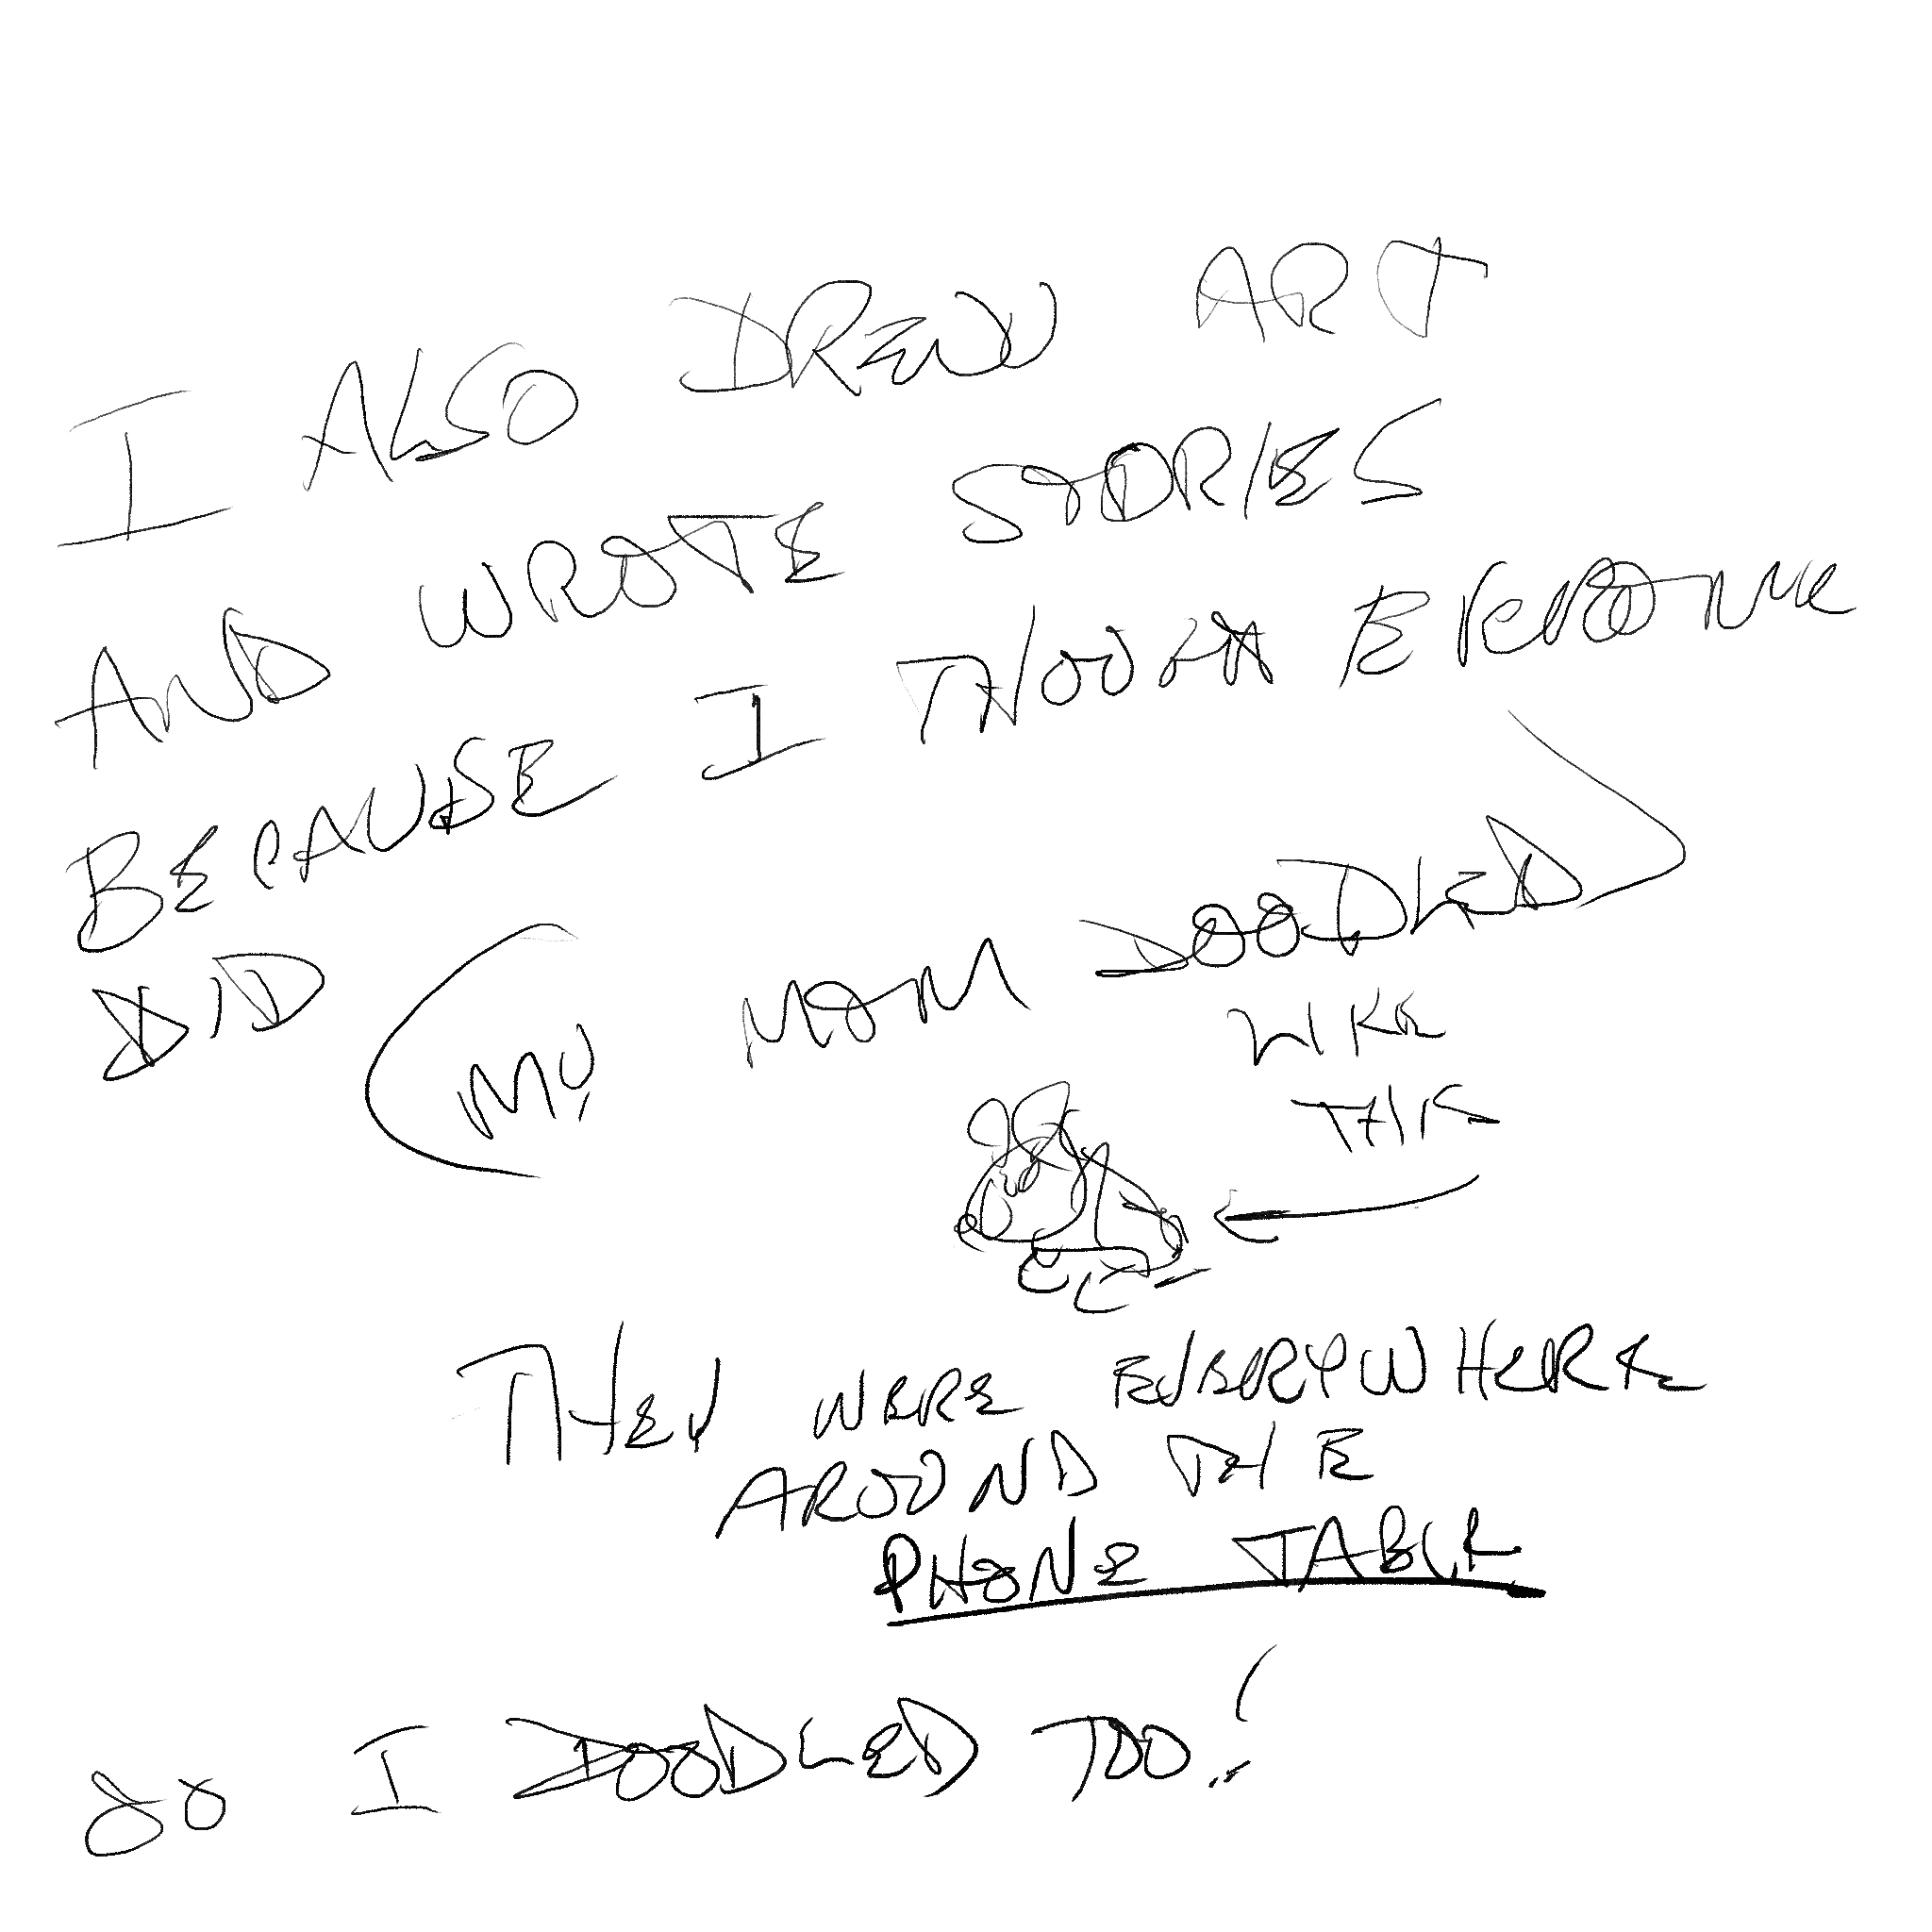 I ALSO DREW ART
AND WROTE STORIES
BECAUSE I THOUGHT EVERYONE
DID (MY MOM DOODLED)
LIKE
THIS
THEY WERE EVERYWHERE
AROUND THE
PHONE TABLE
SO I DOODLED TOO!